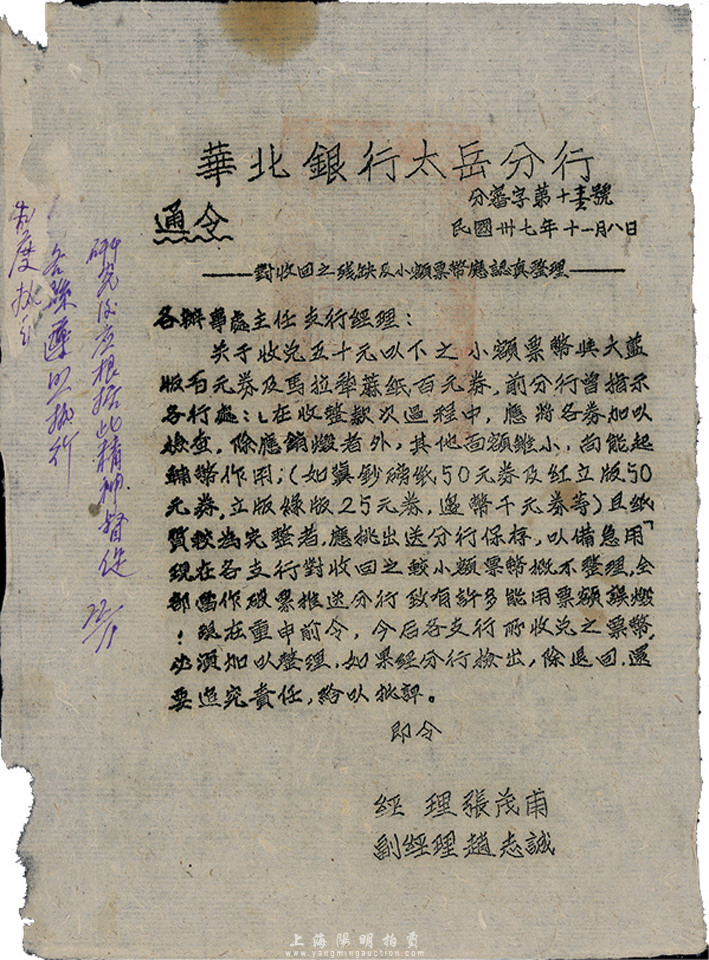 華北銀行太岳分行
分審字第十壹號
通令
民國卅七年十一月八日
對收回之残缺及小額票幣應認真整理
各辦事處主任支行經理：
关于收兑五十元以下之小額票幣與大藍
版百元券及馬拉犂蔴紙百元券，前分行曾指示
各行處：「在收整款次過程中，應將各券加以
檢查，除應銷燬者外，其他面額雖小，尚能起
輔幣作用，（如冀鈔磅紙50元券及紅立版50
元券，立版綠版25元券，邊幣千元券等）且紙
質較為完整者，應挑出送分行保存，以備急用」
現在各支行對收回之較小額票幣概不整理，全
部當作破票推送分行致有許多能用票額誤燬
！現在重申前令，今后各支行所收兑之票幣，
必須加以整理，如果經分行檢出，除退回，還
要追究責任，給以批評。
即令
經理張茂甫
副經理趙志誠
研究後应根据此精神督促
各縣遵照执行
制度执行
上海陽明拍賣
www.yangmingauction.com